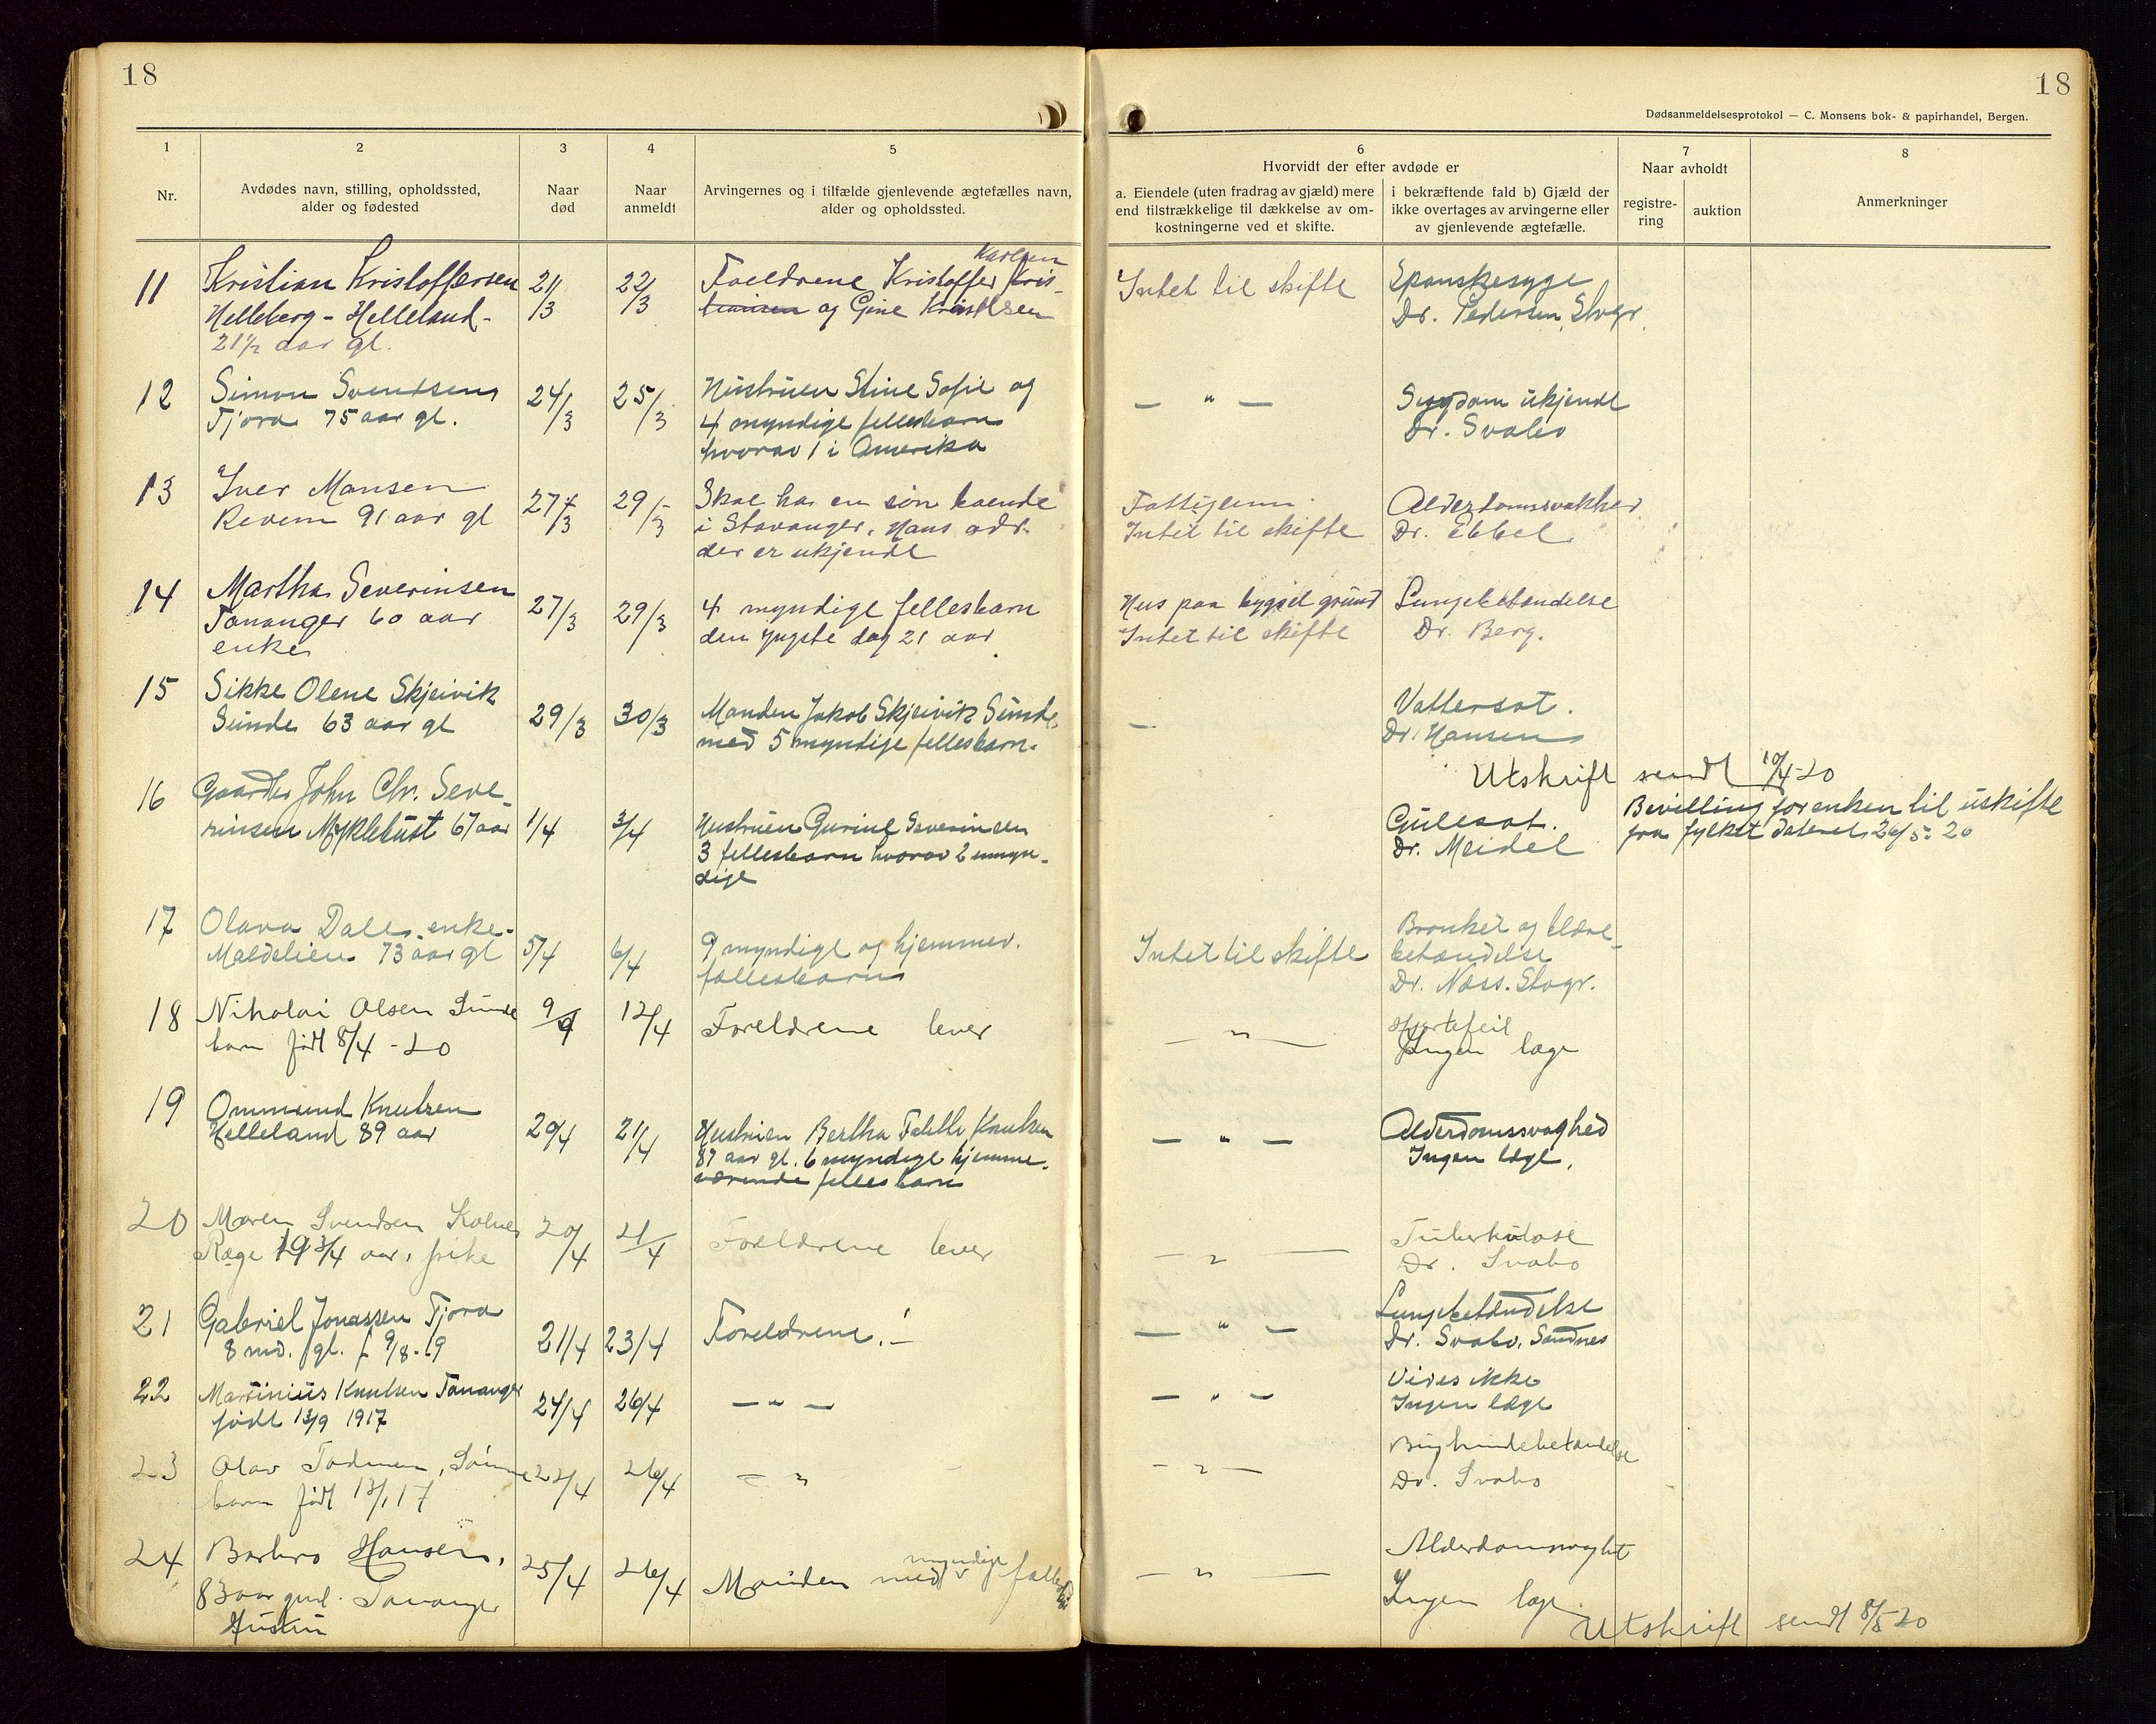 18
18
Dødsanmeldelsesprotokol — C. Monsens bok- & papirhandel, Bergen.
1
Nr.
2
Avdødes navn, stilling, opholdssted,
alder og fødested
3
Naar
død
4
Naar
anmeldt
5
Arvingernes og i tilfælde gjenlevende ægtefælles navn,
alder og opholdssted.
6
Hvorvidt der efter avdøde er
a. Eiendele (uten fradrag av gjæld) mere
end tilstrækkelige til dækkelse av om-
kostningerne ved et skifte.
i bekræftende fald b) Gjæld der
ikke overtages av arvingerne eller
av gjenlevende ægtefælle.
7
Naar avholdt
registre-
ring
auktion
8
Anmerkninger
11
Kristian Kristoffersen
Helleberg - Helleland -
21½ aar gl.
21/3
22/3
Karlsen
Foreldrene Kristoffer Kris-
tiansen og Gine
Intet til skifte
Spanskesyge
Dr. Pedersen, Stvgr.
12
Simon Svendsen
Tjora 75 aar gl.
24/3
25/3
Hustruen Stine Sofie og
4 myndige fellesbarn
hvorav 1 i Amerika
— " —
Sygdom ukjendt
Dr. Svabo
13
Iver Mansen
Revem 91 aar gl
27/3
29/3
Skal ha en søn boende
i Stavanger. Hans adr.
der er ukjendt
Fattiglem
Intet til skifte
Alderdomssvakhed
Dr. Ebbel
14
Martha Severinsen
Tananger 60 aar
enke
27/3
29/3
4 myndige fellesbarn
den yngste dog 21 aar
Hus paa bygsel grund
Intet til skifte
Lungebetændelse
Dr. Berg.
15
Sikke Olene Skjeivik
Sunde 63 aar gl
29/3
30/3
Manden Jakob Skjeivik Sunde
med 5 myndige fellesbarn.
—
Vattersot.
Dr. Hansen
Utskrift sendt 10/4-20
16
Gaardbr John Chr. Seve-
rinsen Myklebust 67 aar
1/4
3/4
Hustruen Gurine Severinsen
3 fellesbarn hvorav 2 umyn-
dige
Gulesot.
Dr. Meidel
Bevilling for enken til uskifte
fra fylket dateret 26/5-20
17
Olava Dale enke-
Maldelien 73 aar gl
5/4
6/4
9 myndige og hjemmev.
fællesbarn
Intet til skifte
Bronket og blære-
betændelse
Dr. Næss. Stvgr.
18
Nikolai Olsen Sunde
barn født 8/4 - 20
9/4
12/4
Foreldrene lever
— " —
Hjertefeil
Ingen læge
19
Ommund Knutsen
Helleland 89 aar
20/4
21/4
Hustruen Bertha Knutsen
87 aar gl. 6 myndige hjemme-
værende felles barn
— " —
Alderdomssvaghed
Ingen læge.
20
Maren Svendsen Kolnes
Ræge 19¾ aar, pike
20/4
21/4
Foreldrene lever
— " —
Tuberkulose
Dr. Svabo
21
Gabriel Jonassen Tjora
8 md. gl. f. 9/8-19
21/4
23/4
Foreldrene. —
— " —
Lungebetændelse
Dr. Svabo, Sandnes
22
Martinius Knutsen Tananger
født 13/9 1917
24/4
26/4
— " —
— " —
Vides ikke
Ingen læge
23
Olav Todnem, Sømme
barn født 13/1 17
22/4
26/4
— " —
— " —
Bughindebetændelse
Dr. Svabo
24
Barbro Hansen,
83 aar gml. Tananger
Hustru
25/4
26/4
myndige
Manden med fælles
— " —
Alderdomsvaghet
Ingen læge.
Utskrift sendt 8/5 20